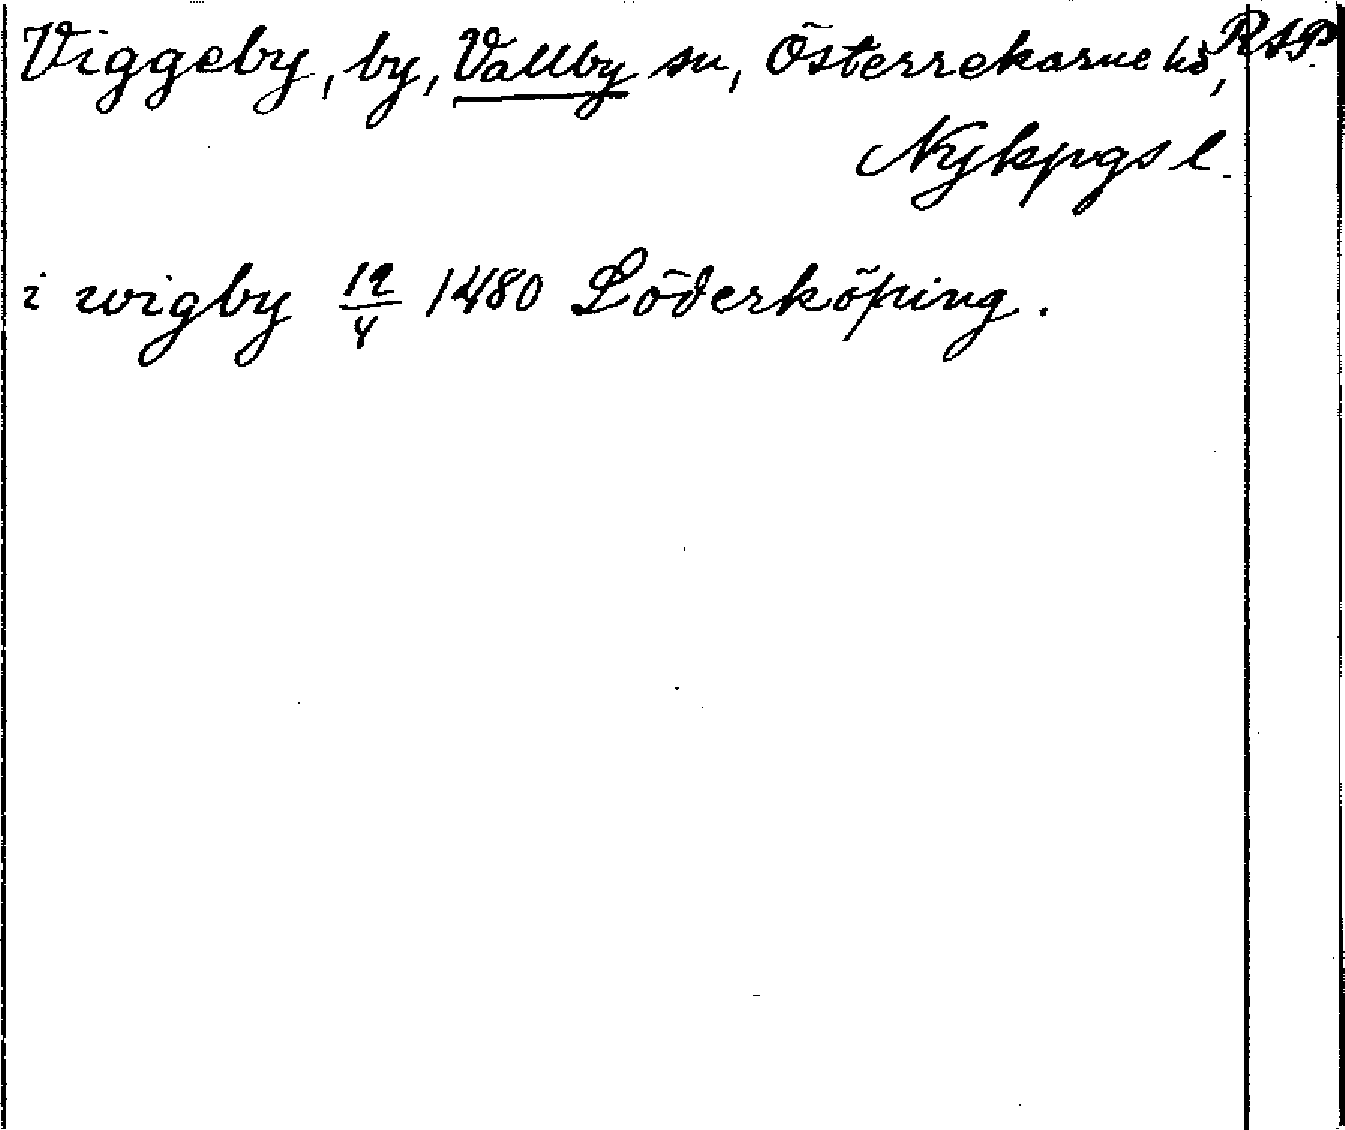 Viggeby, by, Vallby sn, Österrekarne hd, RAP.
Nykpgs l.
i wigby 12/4 1480 Söderköping.